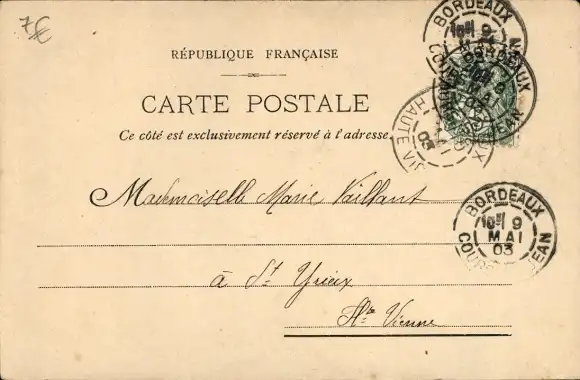 7€
RÉPUBLIQUE FRANÇAISE
CARTE POSTALE
Ce côté est exclusivement réservé à l'adresse.
Mademoiselle Marie Vaillant
à St Yrieix
Hte Vienne
BORDEAUX
9
MAI
03
BORDEAUX
9
MAI
HAUTE VI
03
BORDEAUX
9
MAI
03
COURS
JEAN